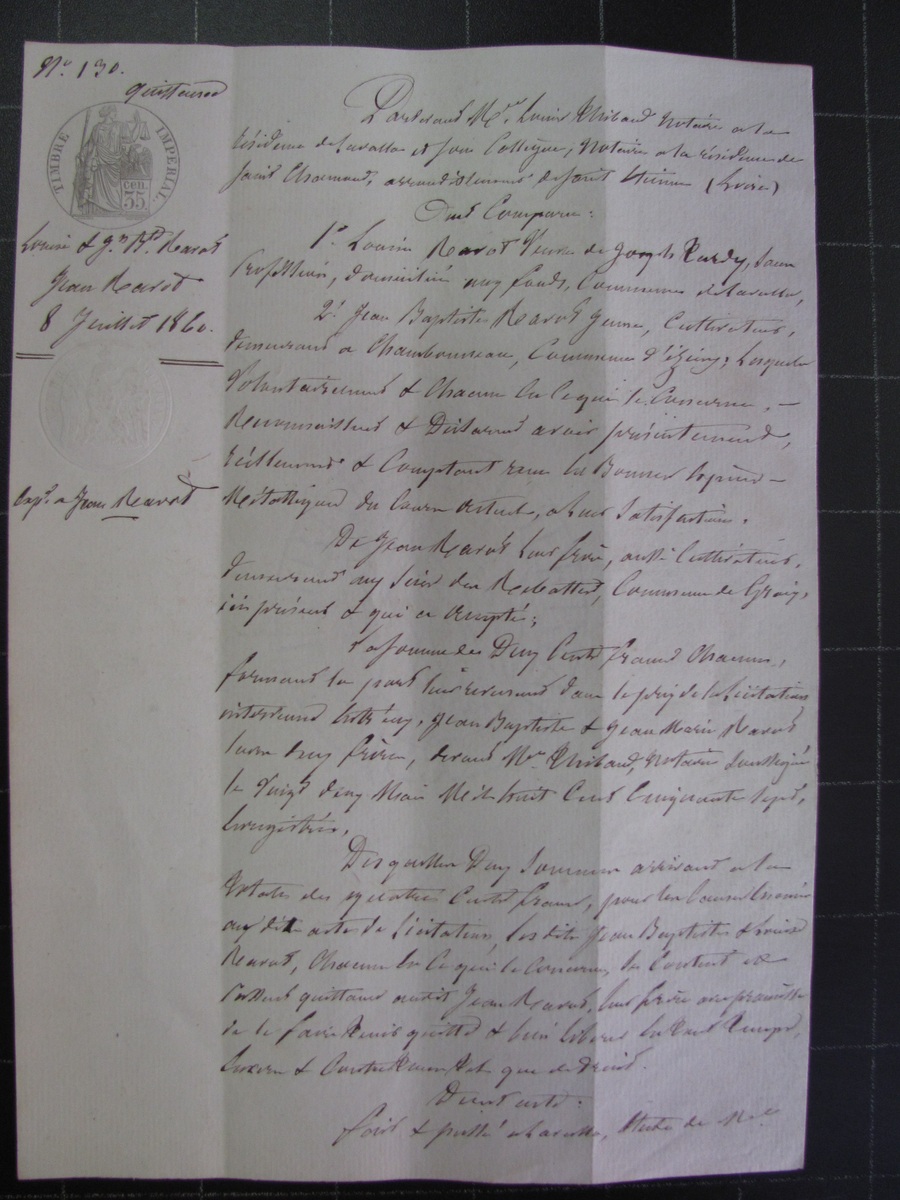 N° 130.
quittance
TIMBRE IMPÉRIAL.
55 cen.
Louise & Jn Bte Ravot
Jean Ravot
8 Juillet 1860.
Expn. a Jean Ravot
Pardevant Me Louis Thibaud Notaire a la
résidence de Lavalla et son Collègue, Notaire a la résidence de
Saint Chamond, arrondissement de Saint Etienne (Loire)
Ont Comparu:
1° Louise Ravot Veuve de Joseph Tardy, sans
Profession, domiciliée aux fonds, Commune de Lavalla,
2° Jean Baptiste Ravot jeune, Cultivateur,
demeurant a Commune d'Izieux; Lesquels
Volontairement & Chacun en Ce qui le Concerne, —
Reconnaissent & Déclarent avoir présentement,
réellement & Comptant reçu en Bonnes Espèces —
Métalliques du Cours actuel, a leur Satisfaction.
De Jean Ravot leur frère, aussi Cultivateur,
demeurant aux Commune de
ici présent & qui accepte;
La Somme de Deux Cents francs Chacun,
formant la part leur revenant dans le prix de la Licitation
intervenue entr'eux, Jean Baptiste & Jean Marie Ravot
leurs deux frères, devant Me Thibaud, Notaire Soussigné
le Vingt deux Mai Mil huit Cent Cinquante Sept,
Enregistrée,
Desquelles Deux Sommes arrivant a la
totale des quatre Cents francs, pour les Causes
au dit acte de Licitation, les dits Jean Baptiste & Louise
Ravot, Chacun en Ce qui le Concerne, Se Contentent &
quittance audit Jean Ravot, leur frère avec promesse
de le faire tenir quitte & bien libéré en tout temps,
Envers & Contre tous que de Droit.
Dont acte:
fait & passé a Lavalla, Etude de Me